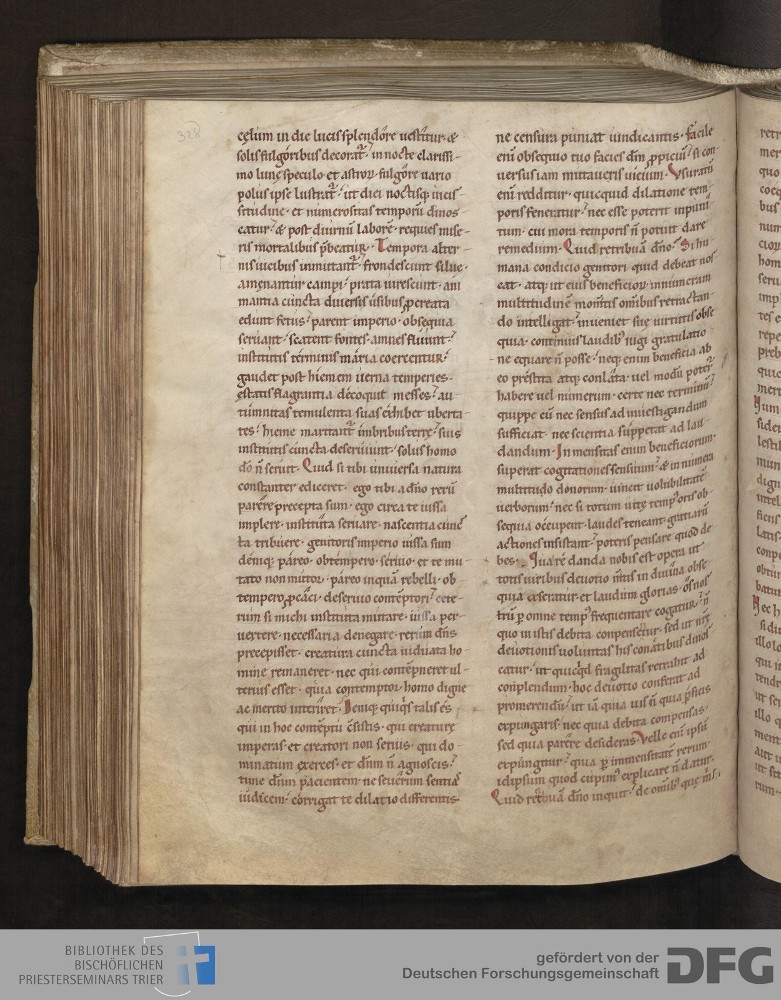 328
cęlum in die lucis splendóre uestítur· &
solis fulgóribus decorat᷑· in nocte clarissi-
mo lunę speculo et astroꝝ fulgóre uario
polus ipse lustrat᷑· ut diei noctisq; uicis-
sitúdine· et numerositas temporū dinos-
catur· & post diurnū laborē· requies mise-
ris mortalibus p̄beatur. Tempora alter-
nis uicibus inmutant᷑· frondescunt siluę·
amęnantur campi· prata uirescunt· ani
mantia cuncta diuersis úsibus ꝓcreata
edunt fetus· parent imperio· obsequia
seruiunt· scatent fontes· amnes fluunt·
institutis términis mária coercentur·
gaudet post hiemem uerna temperies·
ęstatis flagrantia décoquit messes· au-
túmnitas temulenta suas exhibet uberta-
tes· hieme maritant᷑ imbribus terrę· suis
institutis cuncta deseruiunt· solus homo
dō ñ seruit. Quid si tibi uniuersa natura
constanter ediceret· ego tibi a dn̄o rerū
parére precepta sum· ego circa te iussa
implere· institúta seruare· nascentia cunc̄
ta tribúere· genitoris imperio iussa sum
déniq; páreo· obtémpero· séruio· et te mu-
tato non mutor· páreo inquā rebelli· ob-
tempero ꝓcáci· deseruio contēptori· cete-
rum si michi instituta mutare· iussa per-
uertere· necessaria denegare· rerum dn̄s
precepisset· creatura cuncta uiduata ho-
mine remaneret· nec qui contēpneret ul-
terius esset· quia contemptor homo digne
ac merito interíret. Deniq; quiq̇s talis es·
qui in hoc contēptu c̄sistis· qui creaturę
imperas· et creatori non seruis· qui do-
minatum exerces· et dn̄m ñ agnoscis·
tunc dn̄m pacientem· ne seuérum sentias
iúdicem· córrigat te dilatio differentis·
ne censura puniat uindicantis· fácile
eni obsequio tuo facies dn̄m ꝓpiciū· si con-
uersus iam mutaueris uicium. Vsuratū
eni redditur· quicquid dilatione tem-
poris feneratur· nec esse poterit inpuni-
tum· cui mora temporis ñ potuit dare
remedium. Quid retribuā dn̄o. Si hu-
mana condicio genitori quid debeat nos
cat· atq; ut eius beneficioꝝ innumeram
multitudinē momtis omībus retractan-
do intelligat· inueniet suę uirtutis obse
quia· continuis laudib; iugi gratulatio
ne equare ñ posse· neq; enim beneficia ab
eo prestita atq; conlata· uel modū poter᷑
habere uel numerum· certe nec terminū
quippe cū nec sensus ad inuestigandum
sufficiat· nec scientia suppetat ad lau-
dandum. Inmensitas enim beneficiorum·
superat cogitationes sensuum· & innumera
multitudo donorum· uincit uolubilitatē
uerborum· nec si totum uitę temporis ob-
sequia occupent· laudes teneant· gratiarū
actiones insistant· poteris pensare quod de-
bes. Quare danda nobis est opera ut
totis uiribus deuotio n̄tis in diuina obse-
quia exseratur· et laudum glorias· os nos
trū ꝑ omne temp; frequentare cogatur· ñ
quo in istis debita conpensētur· sed ut nr̄ę
deuotionis uoluntas his conatibus dinos
catur· ut quicq̇d fragilitas retrahit ad
conplendum· hoc deuotio conferat ad
promerendū· ut iā quia uis ñ quia ꝓficis
expungaris· nec quia debita compensas·
sed quia parére desideras. Velle eni ipsū
expungitur· quia ꝑ immensitatē rerum·
idipsum quod cupim; explicare ñ datur.
Quid retribuā dn̄o inquit· de omīb; quę m̄i
BIBLIOTHEK DES
BISCHÖFLICHEN
PRIESTERSEMINARS TRIER
gefördert von der
Deutschen Forschungsgemeinschaft
DFG